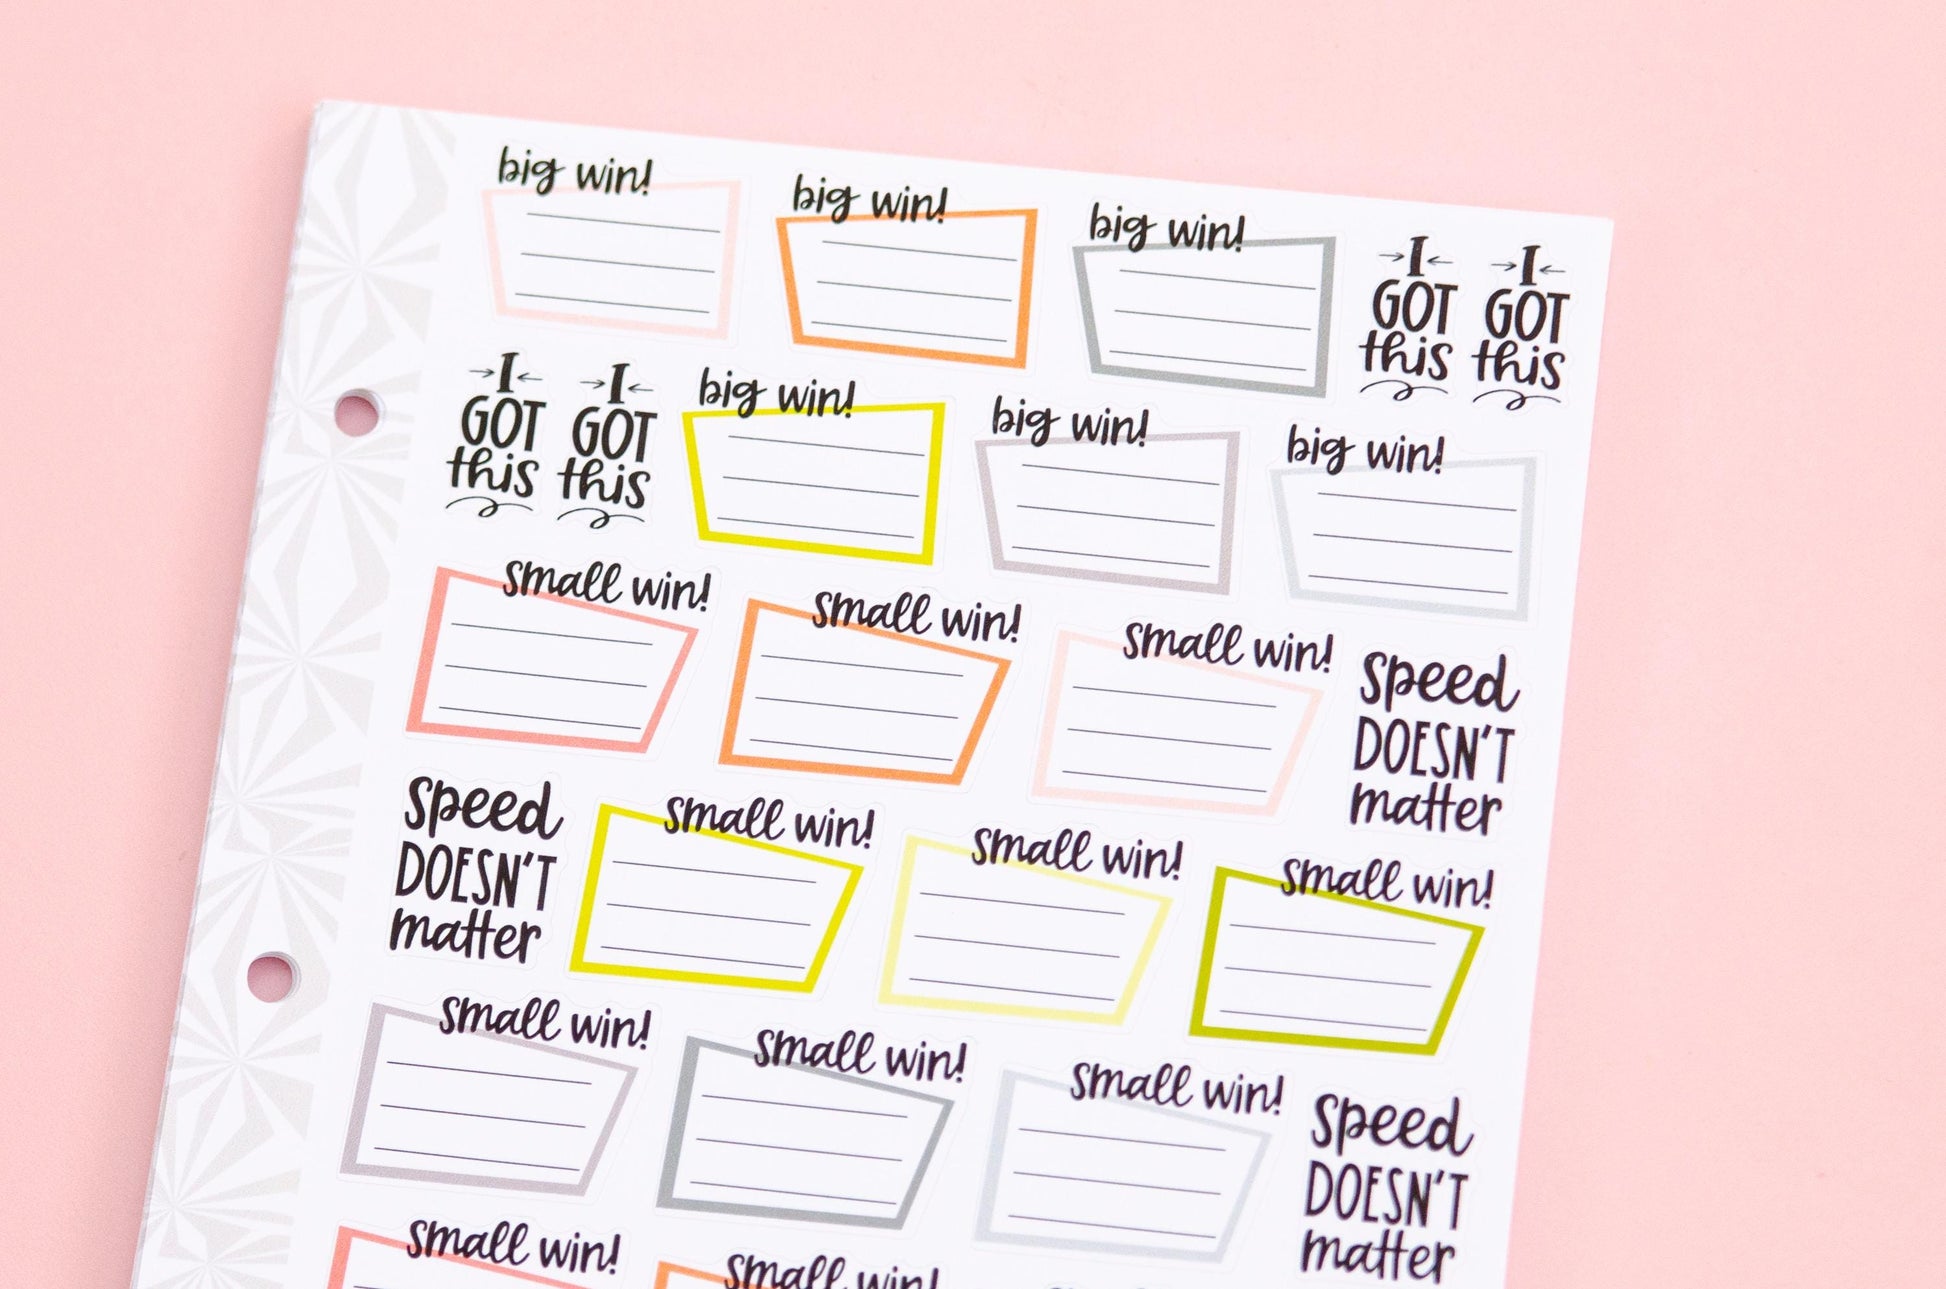 big win!
big win!
big win!
I
GOT
this
I
GOT
this
I
GOT
this
I
GOT
this
big win!
big win!
big win!
small win!
small win!
small win!
speed
DOESN'T
matter
speed
DOESN'T
matter
small win!
small win!
small win!
small win!
small win!
small win!
speed
DOESN'T
matter
small win!
small win!